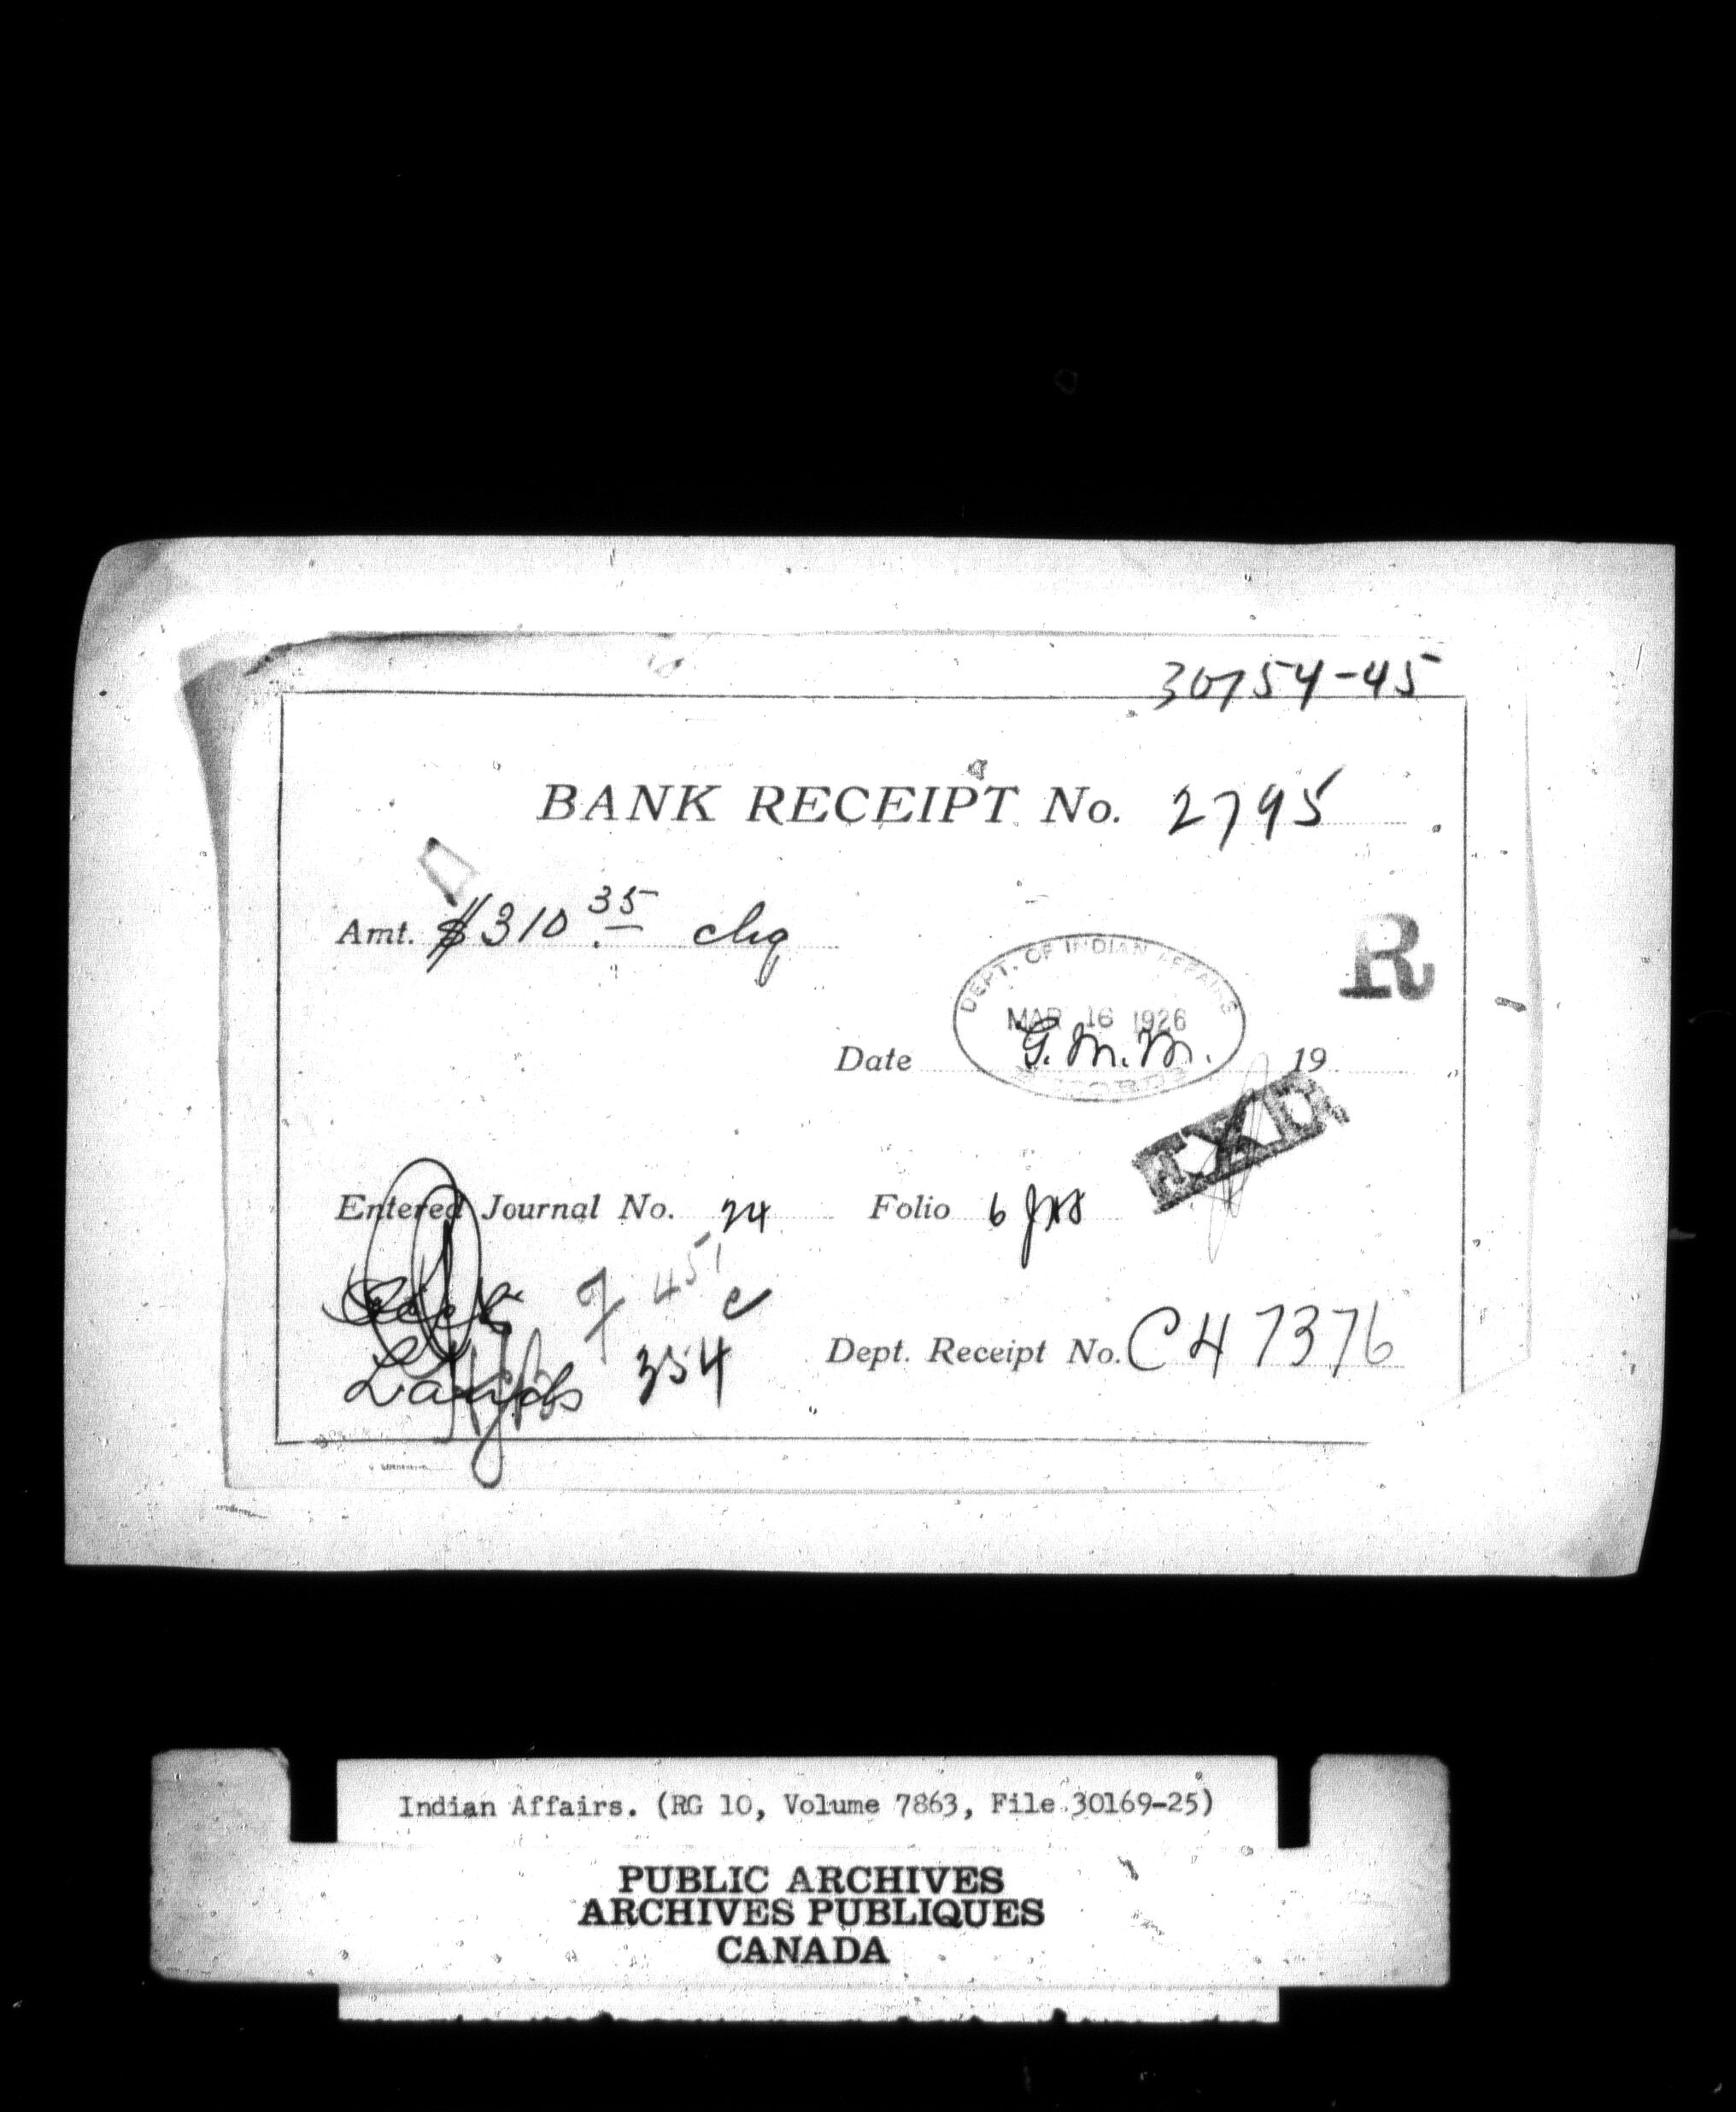 30754-45
BANK RECEIPT No. 2795
Amt. $310 35 chq
R
DEPT. OF INDIAN AFFAIRS
MAR 16 1926
G.M.M.
RECORDS
Date 19
EXD.
Entered Journal No. 24 Folio 6
45
c
Lands 354
Dept. Receipt No. C47376
Indian Affairs. (RG 10, Volume 7863, File 30169-25)
PUBLIC ARCHIVES
ARCHIVES PUBLIQUES
CANADA